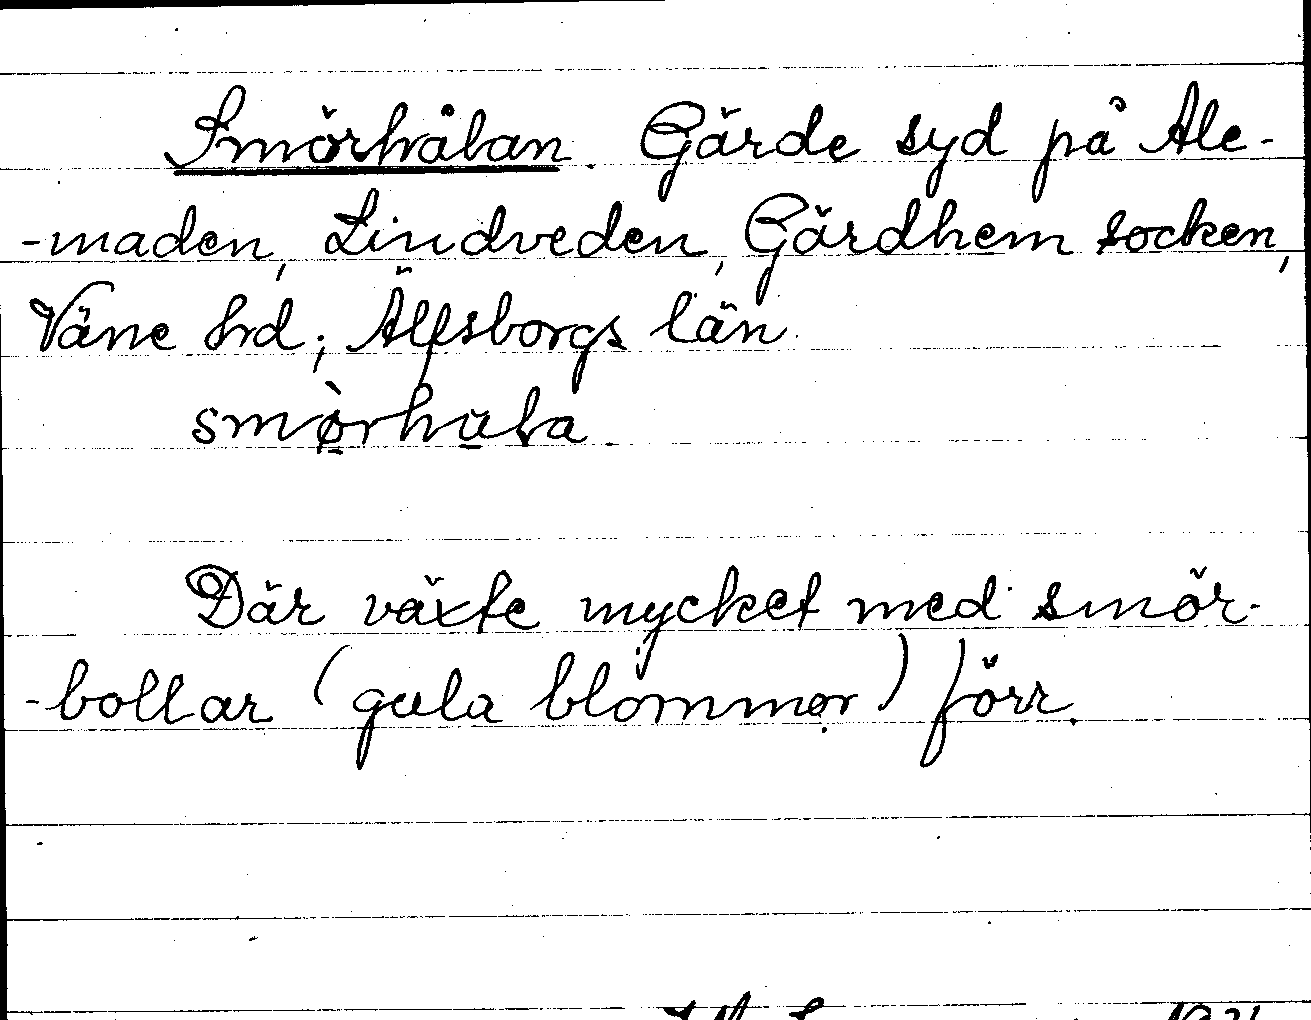 Smörhålan. Gärde syd på Ale-
-maden, Lindveden, Gärdhem socken,
Väne hrd; Älfsborgs län.
smörhula
Där växte mycket med smör-
-bollar (gula blommor) förr.